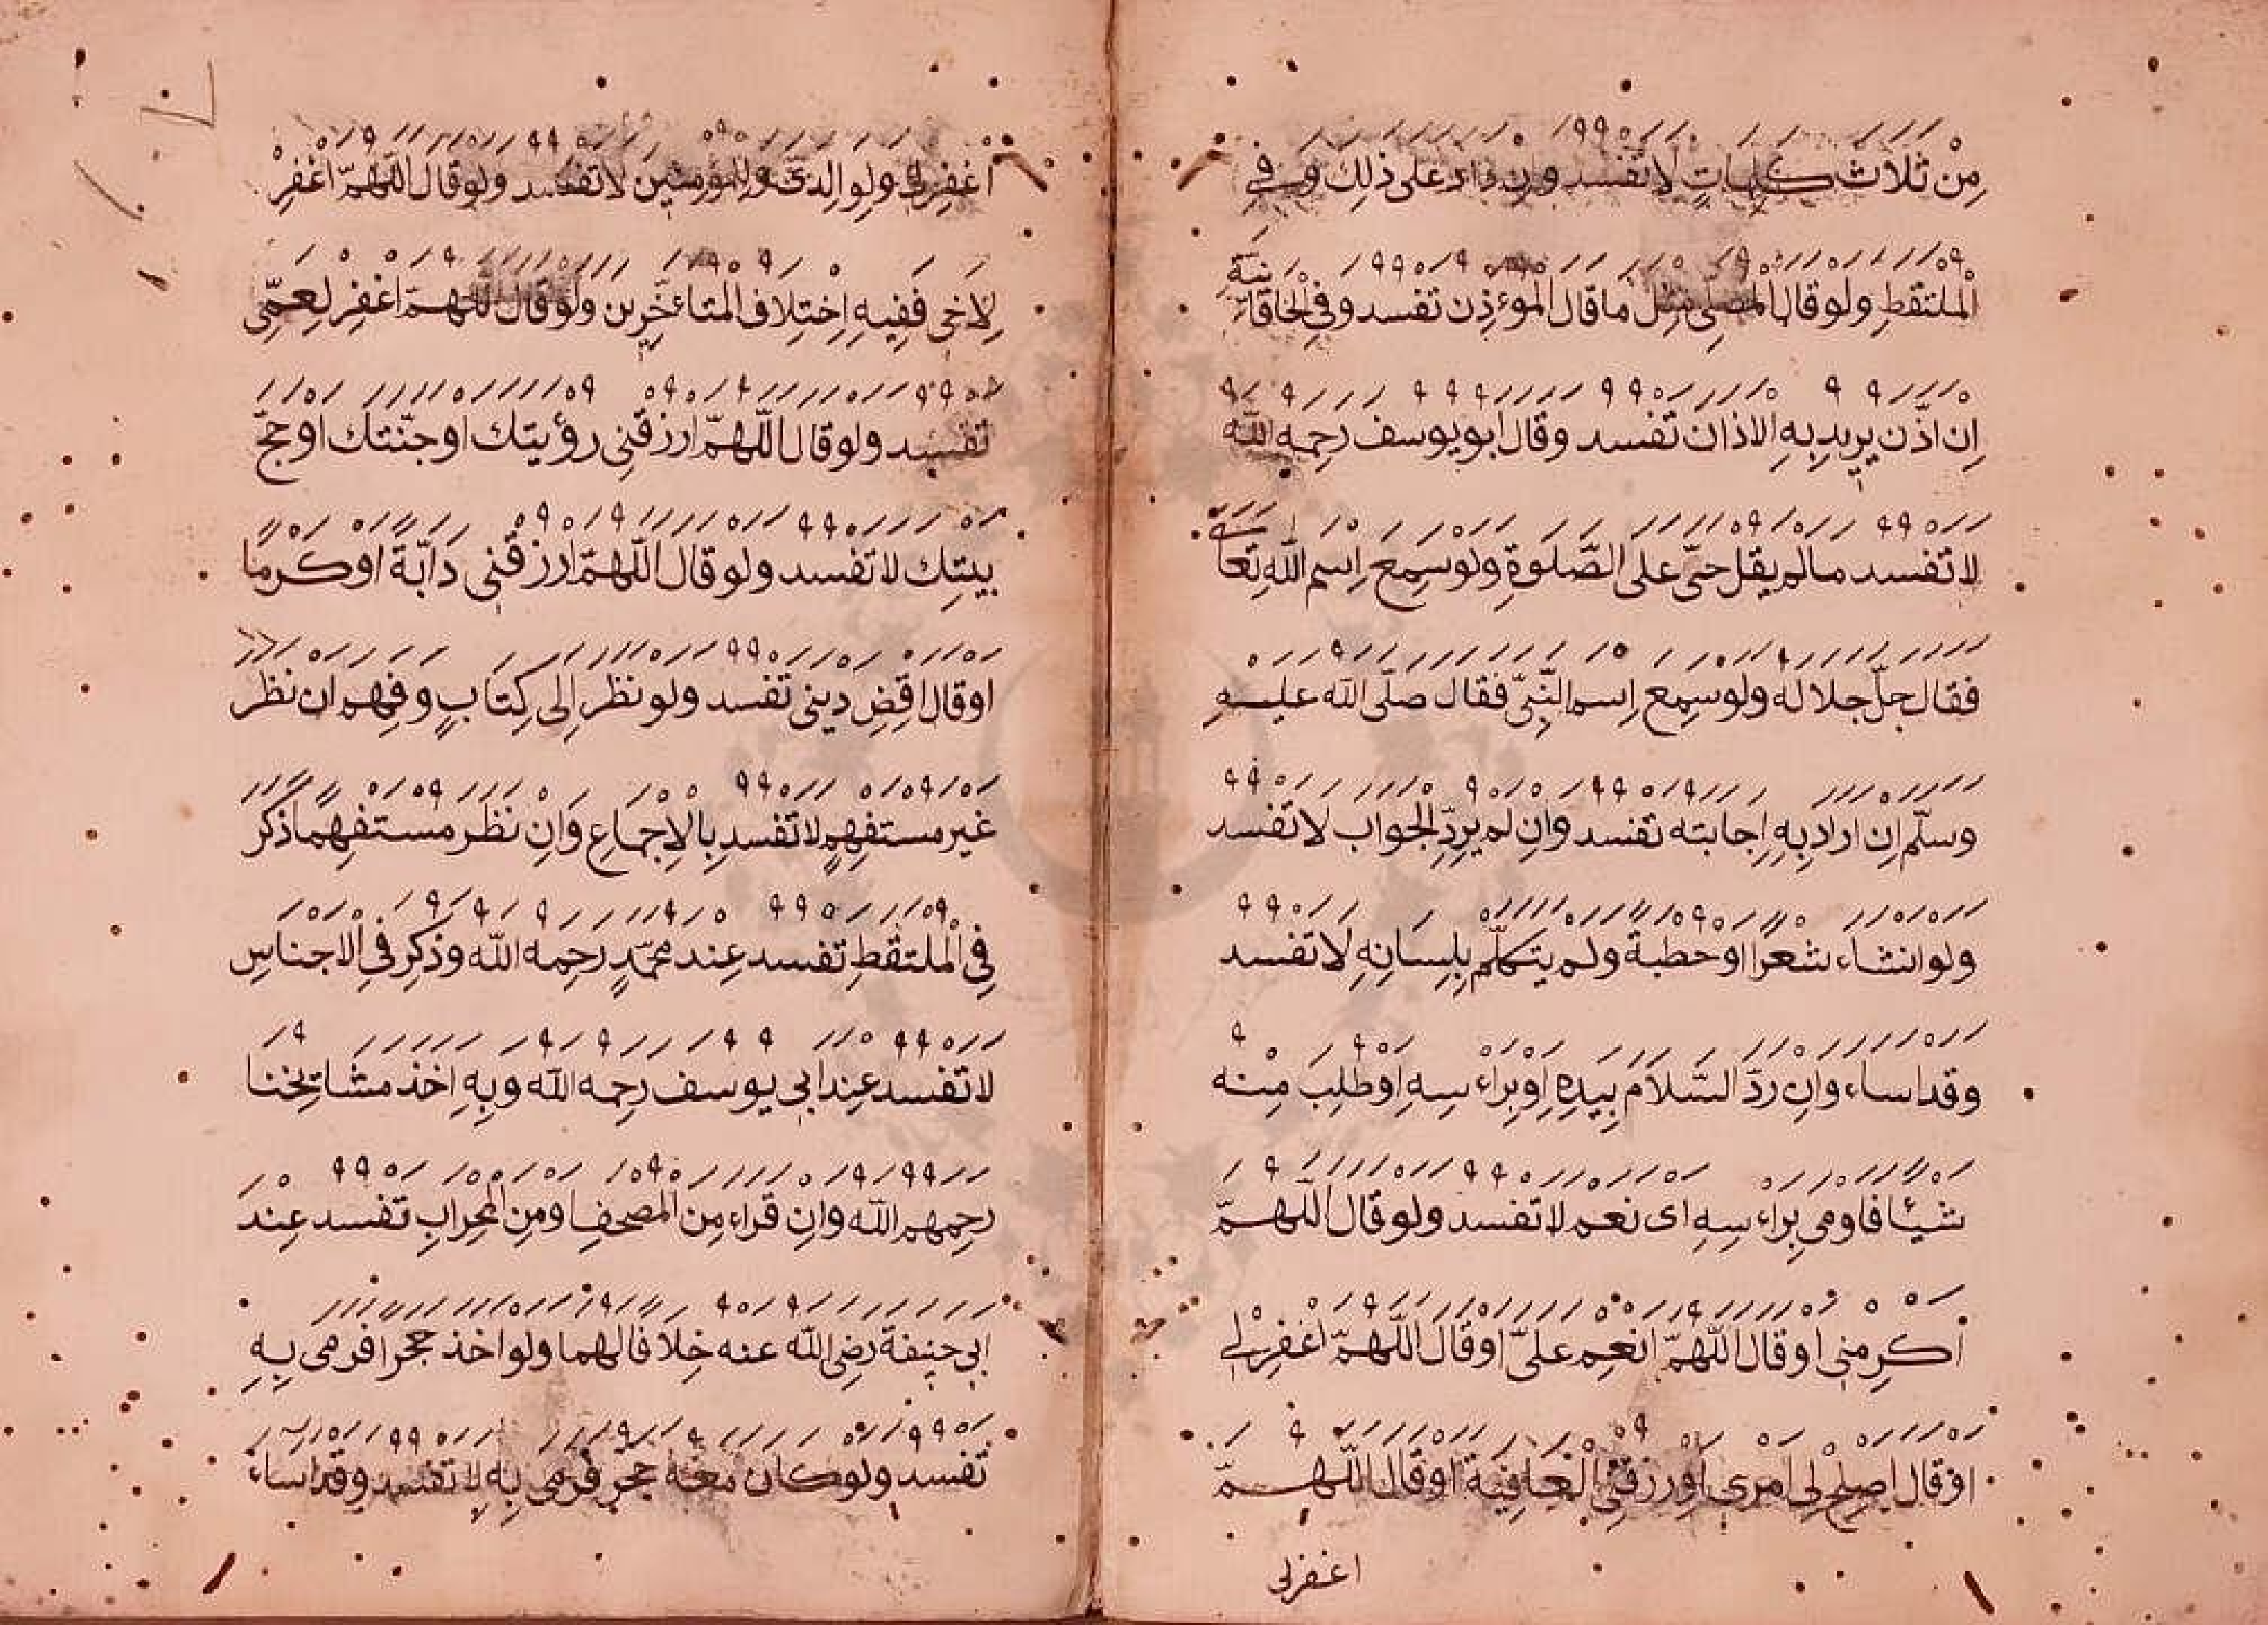 مِنْ ثَلَاثَ كَلِمَاتٍ لَا تَفسد وان زاد على ذلِكَ وَفِي
الْملتقطِ ولو قال المصلّى مِثل مَا قال الموءذِن تفسد وفي الخاقانية
اِن اذّن يريد بِهِ الاذان تفسد وقال ابو يوسف رحِمه الله
لا تفسد مالم يقل حىّ على الصّلوةِ ولو سمِع اِسم اللهِ تعالى
فقال جلّ جلاله ولو سمِع اِسم النّبِىّ فقال صلّى الله عليهِ
وسلّم اِن اراد بِهِ اِجابته تفسد وانِ لم يرِدِ الجواب لا تفسد
ولو انشاء شعرًا او خطبة ولم يتكلّم بِلِسَانِهِ لَا تفسد
وقد اساء وانِ ردّ السّلَامَ بِيَدِهِ اوبِراء سِهِ او طلِبَ مِنه
شيئا فاومى بِراء سِهِ اى نعم لا تفسد ولو قال اللّهمّ
اَكرِمنى او قال اللّهمّ انعِم علىّ او قال اللّهمّ اغفِرْلِى
اوقال اصلِحْ لِى امْرِى اَوِرزقنِى الْعَافِيَة او قال اللّهمّ
اغفرلى
اغفِرلِى ولِوالِدىّ ولِلموْمِنِين لا تفسد ولو قال اللّهمّ اغْفِرْ
لِاَخِى ففِيهِ اِخْتِلَاف المتاءخّرِين ولو قال اللّهمّ اغْفِرْ لِعمِّى
تفسد ولو قال اللّهمّ ارزقنِى رؤيتك او جنّتك او حجّ
بيتِك لا تفسد ولو قال اللّهمّ ارزقْنِى دَابّة او كرمًا
او قال اقِضِ دينِى تفسد ولو نظر اِلى كِتَابٍ وفهم ان نظر
غير مستفهِمٍ لا تفسد بِالْاِجماعِ وَانِ نظر مستفهِمًا ذكر
فِى الْملتقطِ تفسد عِند محمّدٍ رحِمه الله وذكِر فِى الاجناسِ
لا تفسد عِند ابى يوسف رحِمه الله وبِهِ اخذ مشائخنا
رحِمهم الله وانِ قراء مِن المصحفِ او مِن المِحرابِ تفسد عِند
ابِى حنِيفة رضِى الله عنه خِلَافا لهما ولو اخذ حجرا فرمى بِهِ
تفسد ولو كان معه حجر فرمى بِهِ لا تفسد وقد اساء